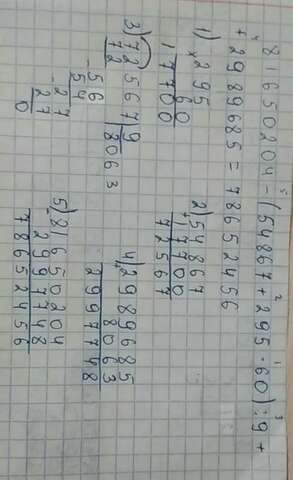 5 2 1 3
81650204 - (54867 + 295 · 60) : 9 +
4
+ 2989685 = 78652456
1) × 295
60
17700
2) + 54867
17700
72567
3) 72567 | 9
72 | 8063
- 56
54
- 27
27
0
4) + 2989685
8063
2997748
5) - 81650204
2997748
78652456